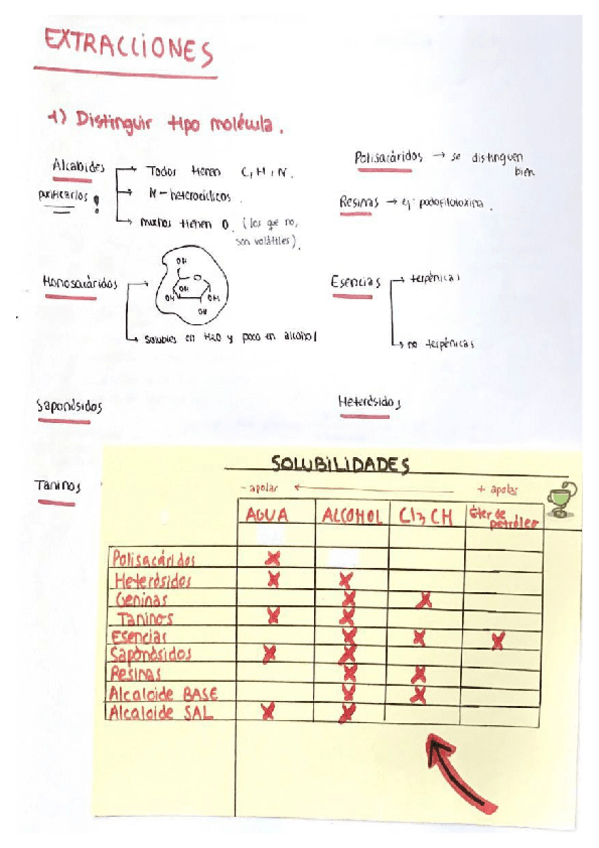 EXTRACCIONES
1) Distinguir tipo molécula.
Alcaloides → Todos tienen C, H, N.
purificarlos !
→ N-heterocíclicos.
→ muchos tienen O. (los que no,
son volátiles).
Polisacáridos → se distinguen
bien
Resinas → ej. podofilotoxina.
Monosacáridos
OH
OH
OH
OH
OH
O
→ solubles en H2O y poco en alcohol
Esencias → terpénicas
→ no terpénicas
Saponósidos
Heterósidos
Taninos
SOLUBILIDADES
- apolar ← + apolar
AGUA ALCOHOL Cl3 CH Éter de
petróleo
Polisacáridos X
Heterósidos X X
Geninas X X
Taninos X X
Esencias X X X
Saponósidos X X
Resinas X X
Alcaloide BASE X X
Alcaloide SAL X X